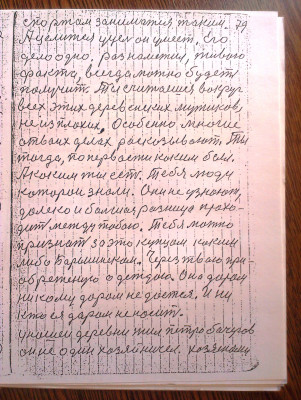 спортом занимался таким. 79
А делится ума он умеет. Его
дело одно. разнаметил, живого
факто, всегда можно будет
получит. Ты считаишся вокруг
всех этих деревенских мужиков,
не из плохих, Особенно многие
отвоих делах расказывают. Ты
тогда, по первасти каким был.
А каким ты сет. Тебя люди
которои знали. Они не узнают,
далеко и балшая разница прахо-
дит между табою. Тебя можно
признат за это купцом каким
либо Барышникам. Через твого при-
обретению одеждаю. Она даром
никому даром не дается. И ни
кто ея даром неносит.
унашей деревни жил петро бачуров
он не один хозяйничел. хозяевами